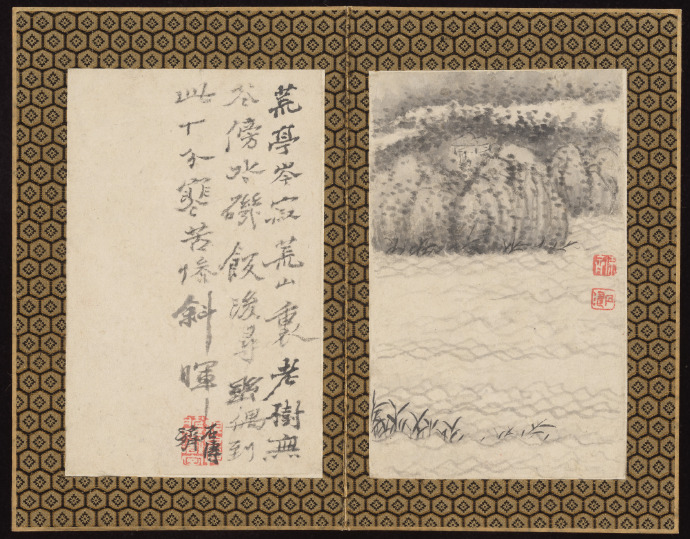 荒亭岑寂荒山裏老樹無
花傍水磯飯後尋幽偶到
此十分寒苦惨斜暉
石濤
濟